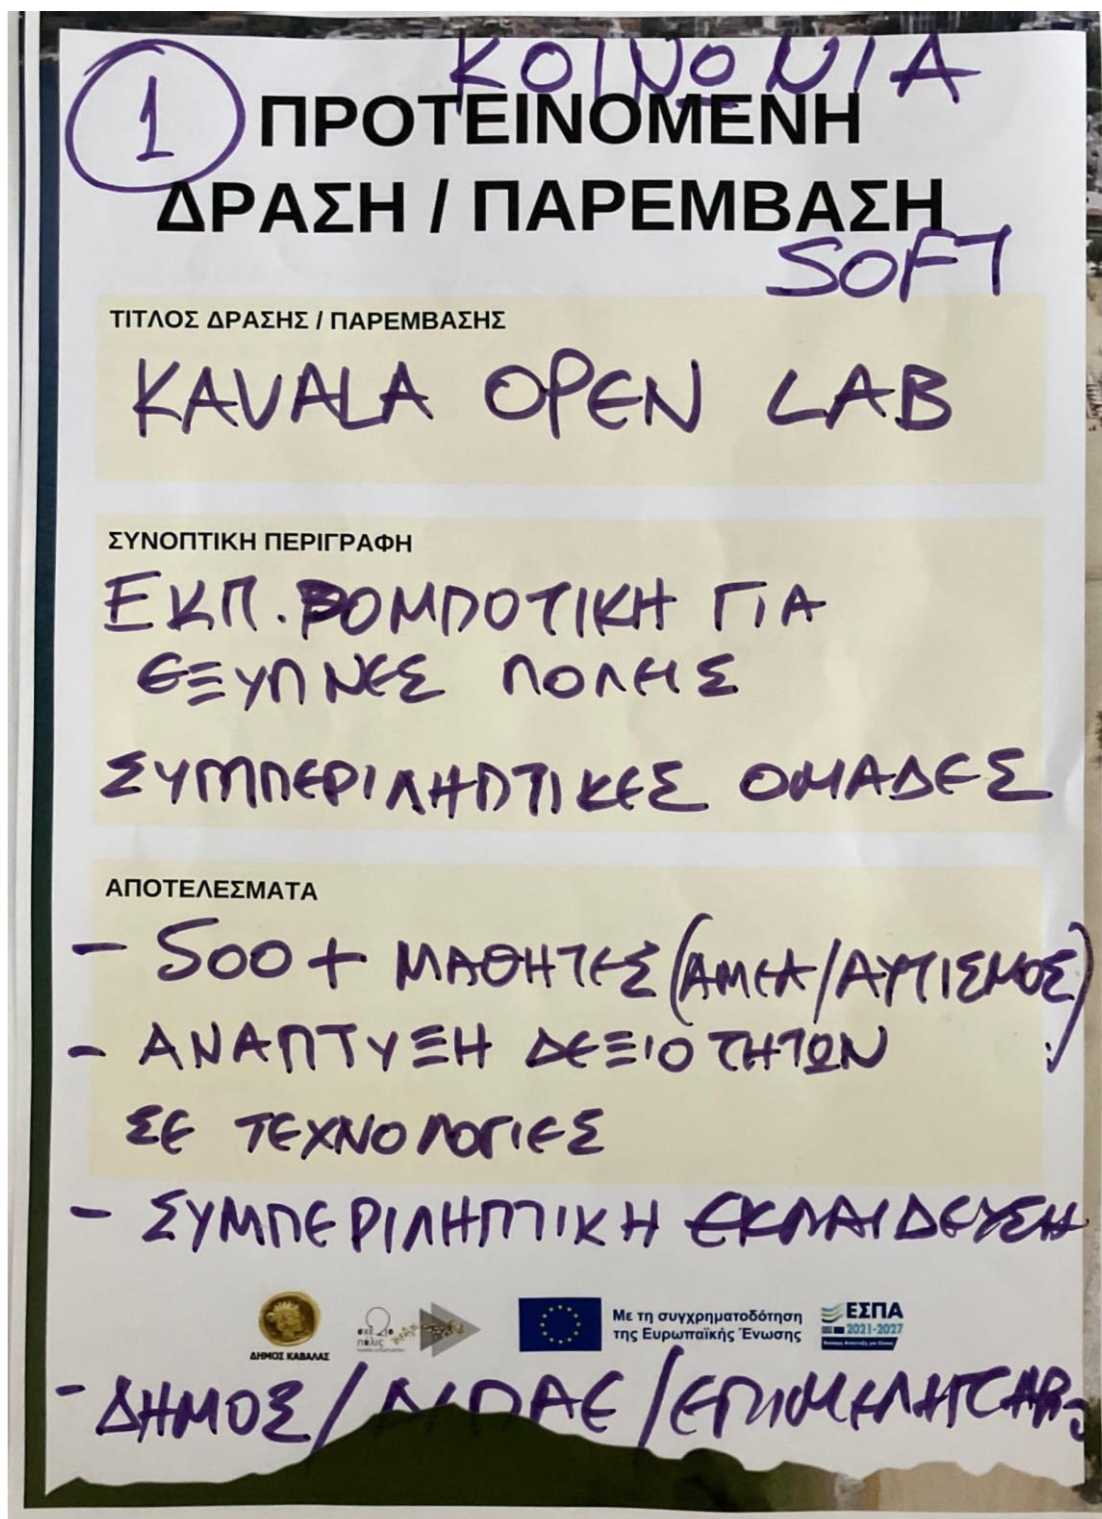 ΚΟΙΝΩΝΙΑ
1 ΠΡΟΤΕΙΝΟΜΕΝΗ
ΔΡΑΣΗ / ΠΑΡΕΜΒΑΣΗ
SOFT
ΤΙΤΛΟΣ ΔΡΑΣΗΣ / ΠΑΡΕΜΒΑΣΗΣ
KAVALA OPEN LAB
ΣΥΝΟΠΤΙΚΗ ΠΕΡΙΓΡΑΦΗ
ΕΚΠ. ΡΟΜΠΟΤΙΚΗ ΓΙΑ
ΕΞΥΠΝΕΣ ΠΟΛΗΣ
ΣΥΜΠΕΡΙΛΗΠΤΙΚΕΣ ΟΜΑΔΕΣ
ΑΠΟΤΕΛΕΣΜΑΤΑ
- 500+ ΜΑΘΗΤΕΣ (ΑΜΕΑ/ΑΥΤΙΣΜΟΣ)
- ΑΝΑΠΤΥΞΗ ΔΕΞΙΟΤΗΤΩΝ
ΣΕ ΤΕΧΝΟΛΟΓΙΕΣ
- ΣΥΜΠΕΡΙΛΗΠΤΙΚΗ ΕΚΠΑΙΔΕΥΣΗ
ΔΗΜΟΣ ΚΑΒΑΛΑΣ
Με τη συγχρηματοδότηση
της Ευρωπαϊκής Ένωσης
ΕΣΠΑ
2021-2027
- ΔΗΜΟΣ/ ΔΙΠΑΕ /